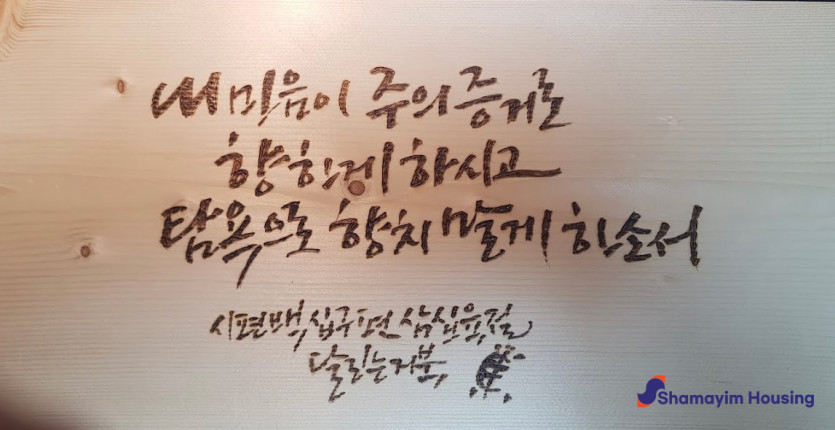 내 마음이 주의 증거로
향하게 하시고
탐욕으로 향치 말게 하소서
시편백십구편삼십육절
달리는거북
Shamayim Housing